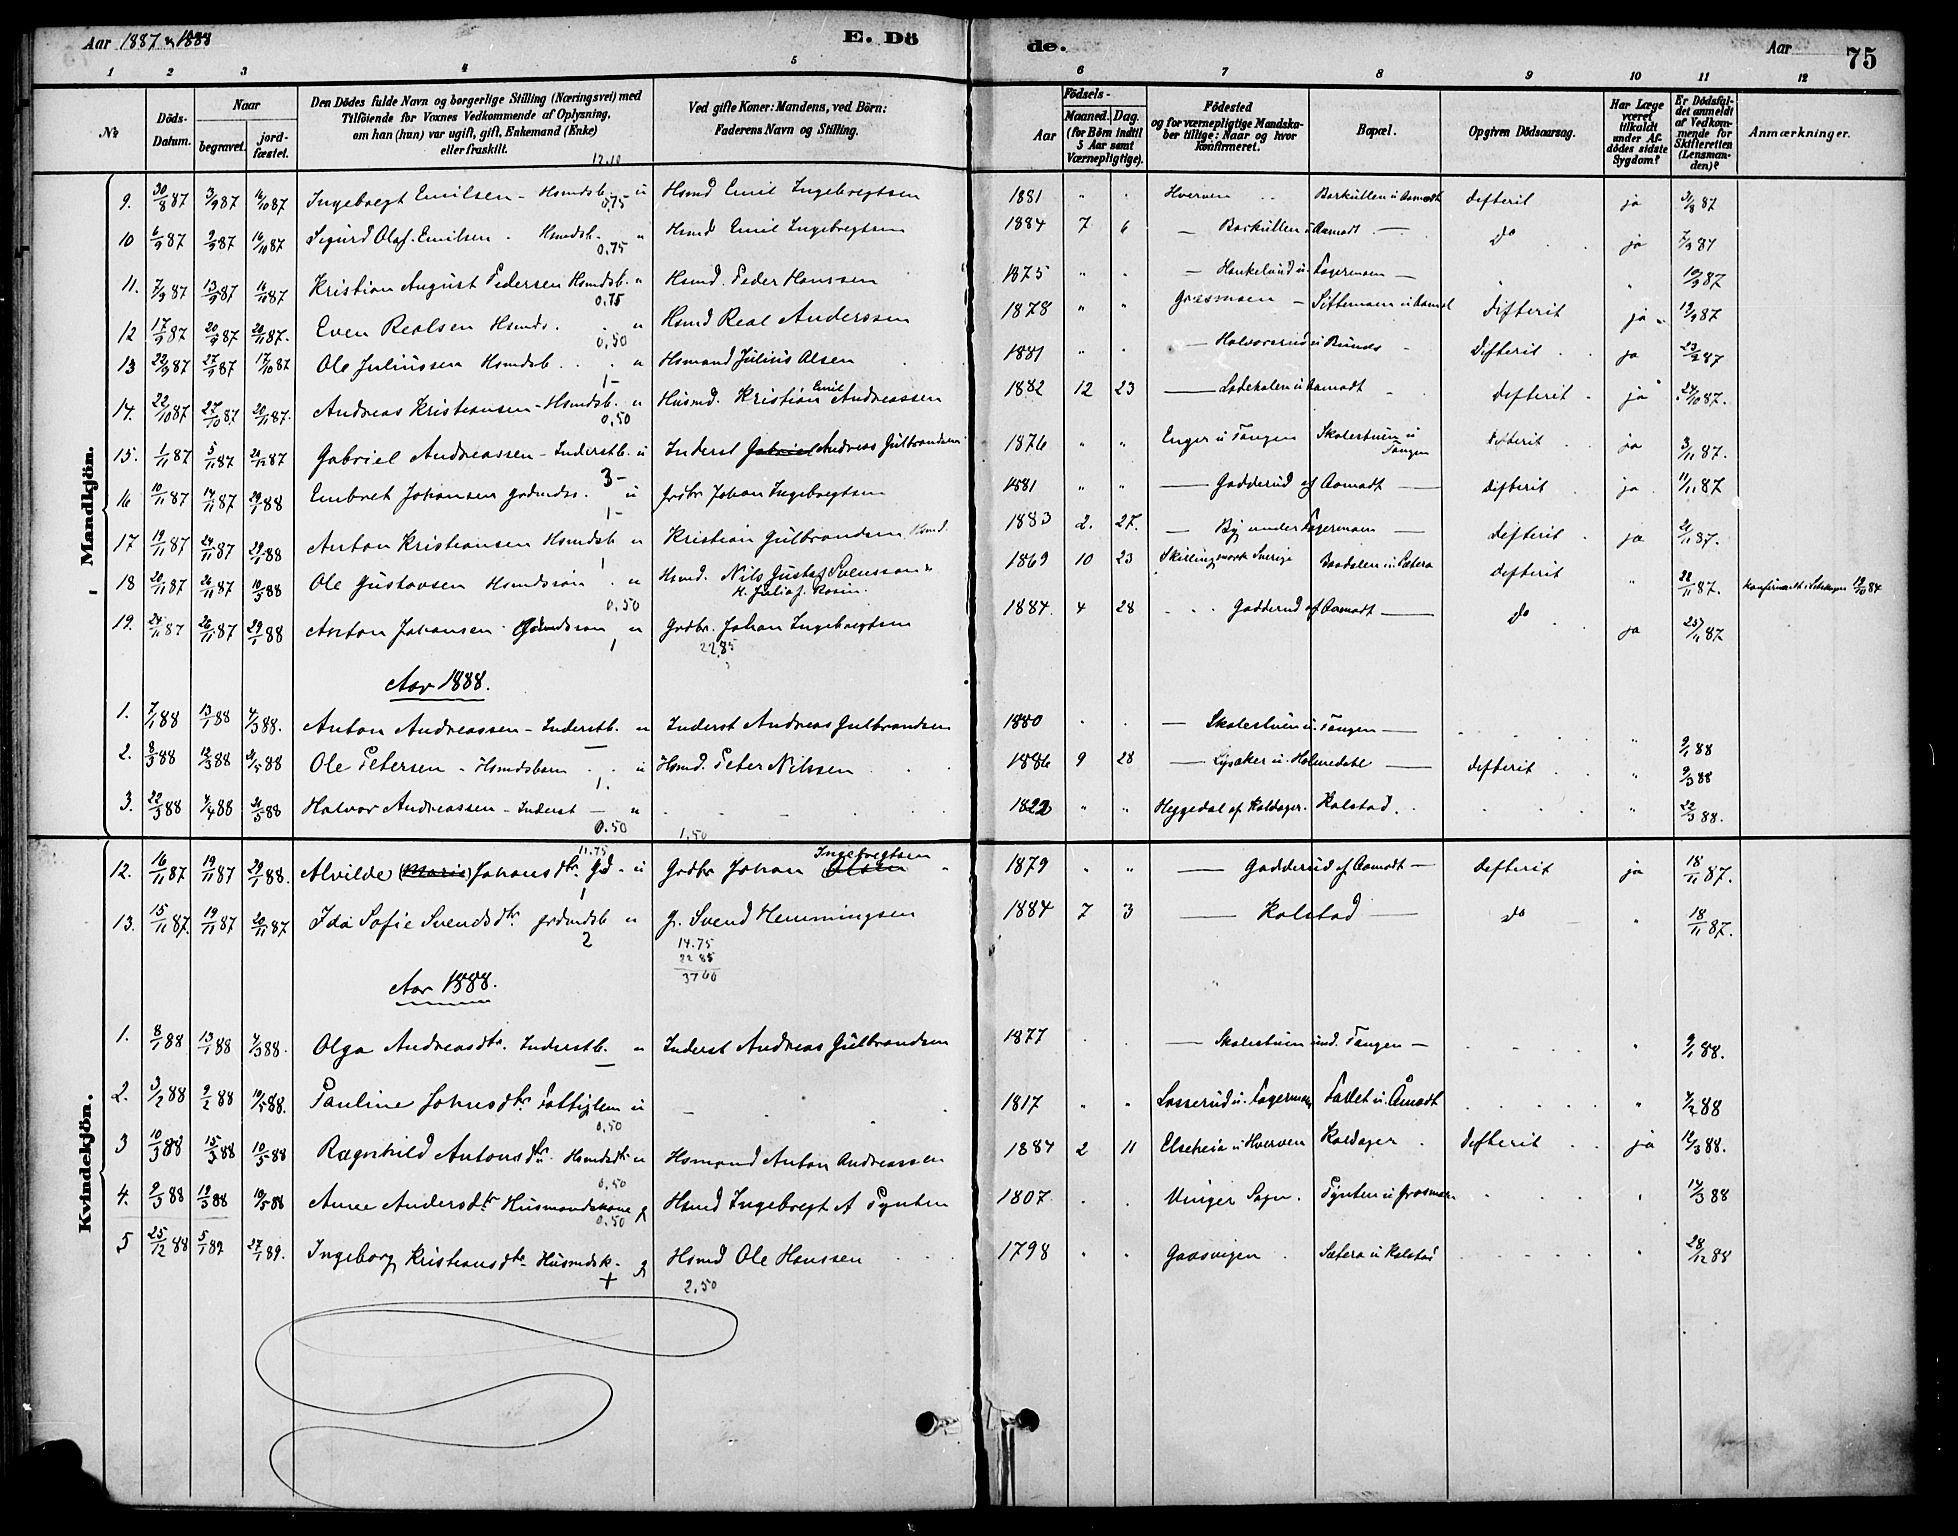 Aar 1887 & 1888 E. Dö
de. Aar 75
1 2 3 4 5 6 7 8 9 10 11 12
No
Döds-Datum.
Naar
begravet. jord-fæstet.
Den Dödes fulde Navn og borgerlige Stilling (Næringsvei) med
Tilföiende for Voxnes Vedkommende af Oplysning,
om han (hun) var ugift, gift, Enkemand (Enke)
eller fraskilt.
12.10
Ved gifte Koner: Mandens, ved Börn:
Faderens Navn og Stilling.
Födsels-
Aar Maaned. Dag.
(for Börn indtil
5 Aar samt
Værnepligtige).
Födested
og for værnepligtige Mandska-
ber tillige: Naar og hvor
konfirmeret.
Bopæl.
Opgiven Dödsaarsag.
Har Læge
været
tilkaldt
under Af-
dödes sidste
Sygdom?
Er Dödsfal-
det anmeldt
af Vedkom-
mende for
Skifteretten
(Lensman-
den)?
Anmærkninger.
Mandkjön.
9. 30/8 87 3/9 87 16/10 87 Ingebregt Emilsen - Hsmdsb. u 0.75 Hsmd Emil Ingebregtsen 1881 " " Hverven Barkullen u Aamodt Defterit ja 31/8 87
10 6/9 87 9/9 87 16/10 87 Sigurd Olaf Emilsen - Hsmdsb. " 0.75 Hsmd Emil Ingebregtsen 1884 7 6 — Barkullen u Aamodt — Do ja 7/9 87
11. 7/9 87 13/9 87 16/10 87 Kristian August Pedersen Hsmdsb. u 0.75 Hsmd. Peder Hanssen 1875 " " — Haukelund u. Fagermoen — " " 10/9 87
12 17/9 87 20/9 87 20/11 87. Even Realsen Hsmds. u 0.50 Hsmd Real Anderssen 1878 " " Grasmoen — Difterit ja 19/9 87
13 22/9 87 27/9 87 17/10 87 Ole Juliussen Hsmdsb. u 1- Hsmand Julius Olsen 1881 " " — Halvorsrud u Difterit ja 23/9 87
14. 22/10 87 27/10 87 20/11 87. Andreas Kristiansen - Hsmdsb. u 0.50 Husmd. Kristian Emil Andreassen 1882 12 23 — Ladekalen u Aamodt — Defterit ja 24/10 87.
15. 1/11 87 5/11 87 87 Gabriel Andreassen - Inderstb. u 3- Inderst Gabriel Andreas Gulbrandsen 1876 " " Enger u Tangen Skolestuen u Tangen Defterit ja 3/11 87.
16 10/11 87 14/11 87 29/1 88 Embret Johansen Grdmds. u 1- Grdbr Johan Ingebregtsen 1881 " " — Gadderud af Aamodt — Defterit ja 11/11 87
17 19/11 87 24/11 87 29/1 88 Anton Kristiansen Hsmdsb u 1 Kristian Gulbrandsen Hsmd. 1883 2. 27. — Bij under Fagermoen — Defterit ja 21/11 87.
18 20/11 87 26/11 87 10/3 88 Ole Gustavsen Hsmdssøn u 0.50 Hsmd. Nils Gustaf Svensson & H. Julia f. Rosin 1869 10 23 Skillingmark Sverige Daadalen u Sætera Defterit " 22/11 87. 84
19. 24/11 87 26/11 87 29/1 88 Anton Johansen u 1 Grdbr. Johan Ingebregtsen 22.85 1884. 4 28 Gadderud af Aamodt — Do ja 25/11 87
Aar 1888.
1. 7/1 88 13/1 88 4/3 88. Anton Andreassen - Inderstb. u — Inderst Andreas Gulbrandsen 1880 — Skolestuen u. Tangen — " 9/1 88
2. 8/3 88 12/3 88 21/5 88 Ole Petersen - Hsmdsbarn u 1. Hsmd. Peter Nilssen 1886 9 28 — Lysaker u. Holmedale — Defterit " 9/3 88
3. 22/3 88 4/4 88 21/5 88 Halvor Andreassen - Inderst — u 0.50 1.50 1822 " " Heggedal af Koldager. Kalstad. " 22/3 88.
Kvindekjön.
12. 16/11 87 19/11 87 29/1 88. Alvilde (Marie) Johansdtr. Gd - u 11.75 1 Grdbr Johan Olsen Ingebregtsen 1879 " " — Gadderud af Aamodt — Defterit ja 18/11 87.
13. 15/11 87. 19/11 87 20/11 87 Ida Sofie Svendsdtr. Grdmdsb u 2 G. Svend Hemmingsen 1884 7 3 — Kalstad — Do " 18/11 87.
14.75
22 85
37 60
Aar 1888.
1. 8/1 88 13/1 88 4/3 88. Olga Andreasdtr. Inderstb. u — Inderst Andreas Gulbrandsen 1877 — Skolestuen und. Tangen — " 9/1 88.
2. 3/2 88 9/2 88 10/5 88. Pauline Johnsdtr. Fattiglem u 0.50 — 1817 " " Lasserud u. Fagermoen Fallet u. Åmodt " 4/2 88
3 10/3 88 15/3 88 10/5 88 Ragnhild Antonsdtr. Hsmdsdtr u 0.50 Hsmand Anton Andreassen 1884 2 11 u Hverven Koldager Defterit ja 12/3 88.
4. 9/3 88 19/3 88 10/5 88 Anne Andersdtr Husmandskone g 0.50 Hsmd Ingebregt A Tynten 1807. Vinger Sogn. Tynten u Grasmoen " 14/3 88
5 25/12 88 5/1 89 27/1 89. Ingeborg Kristiansdtr Husmdsk. g + Hsmd Ole Hanssen 2.50 1798 " " Gaasvigen Sætera u Kalstad " 28/12 88